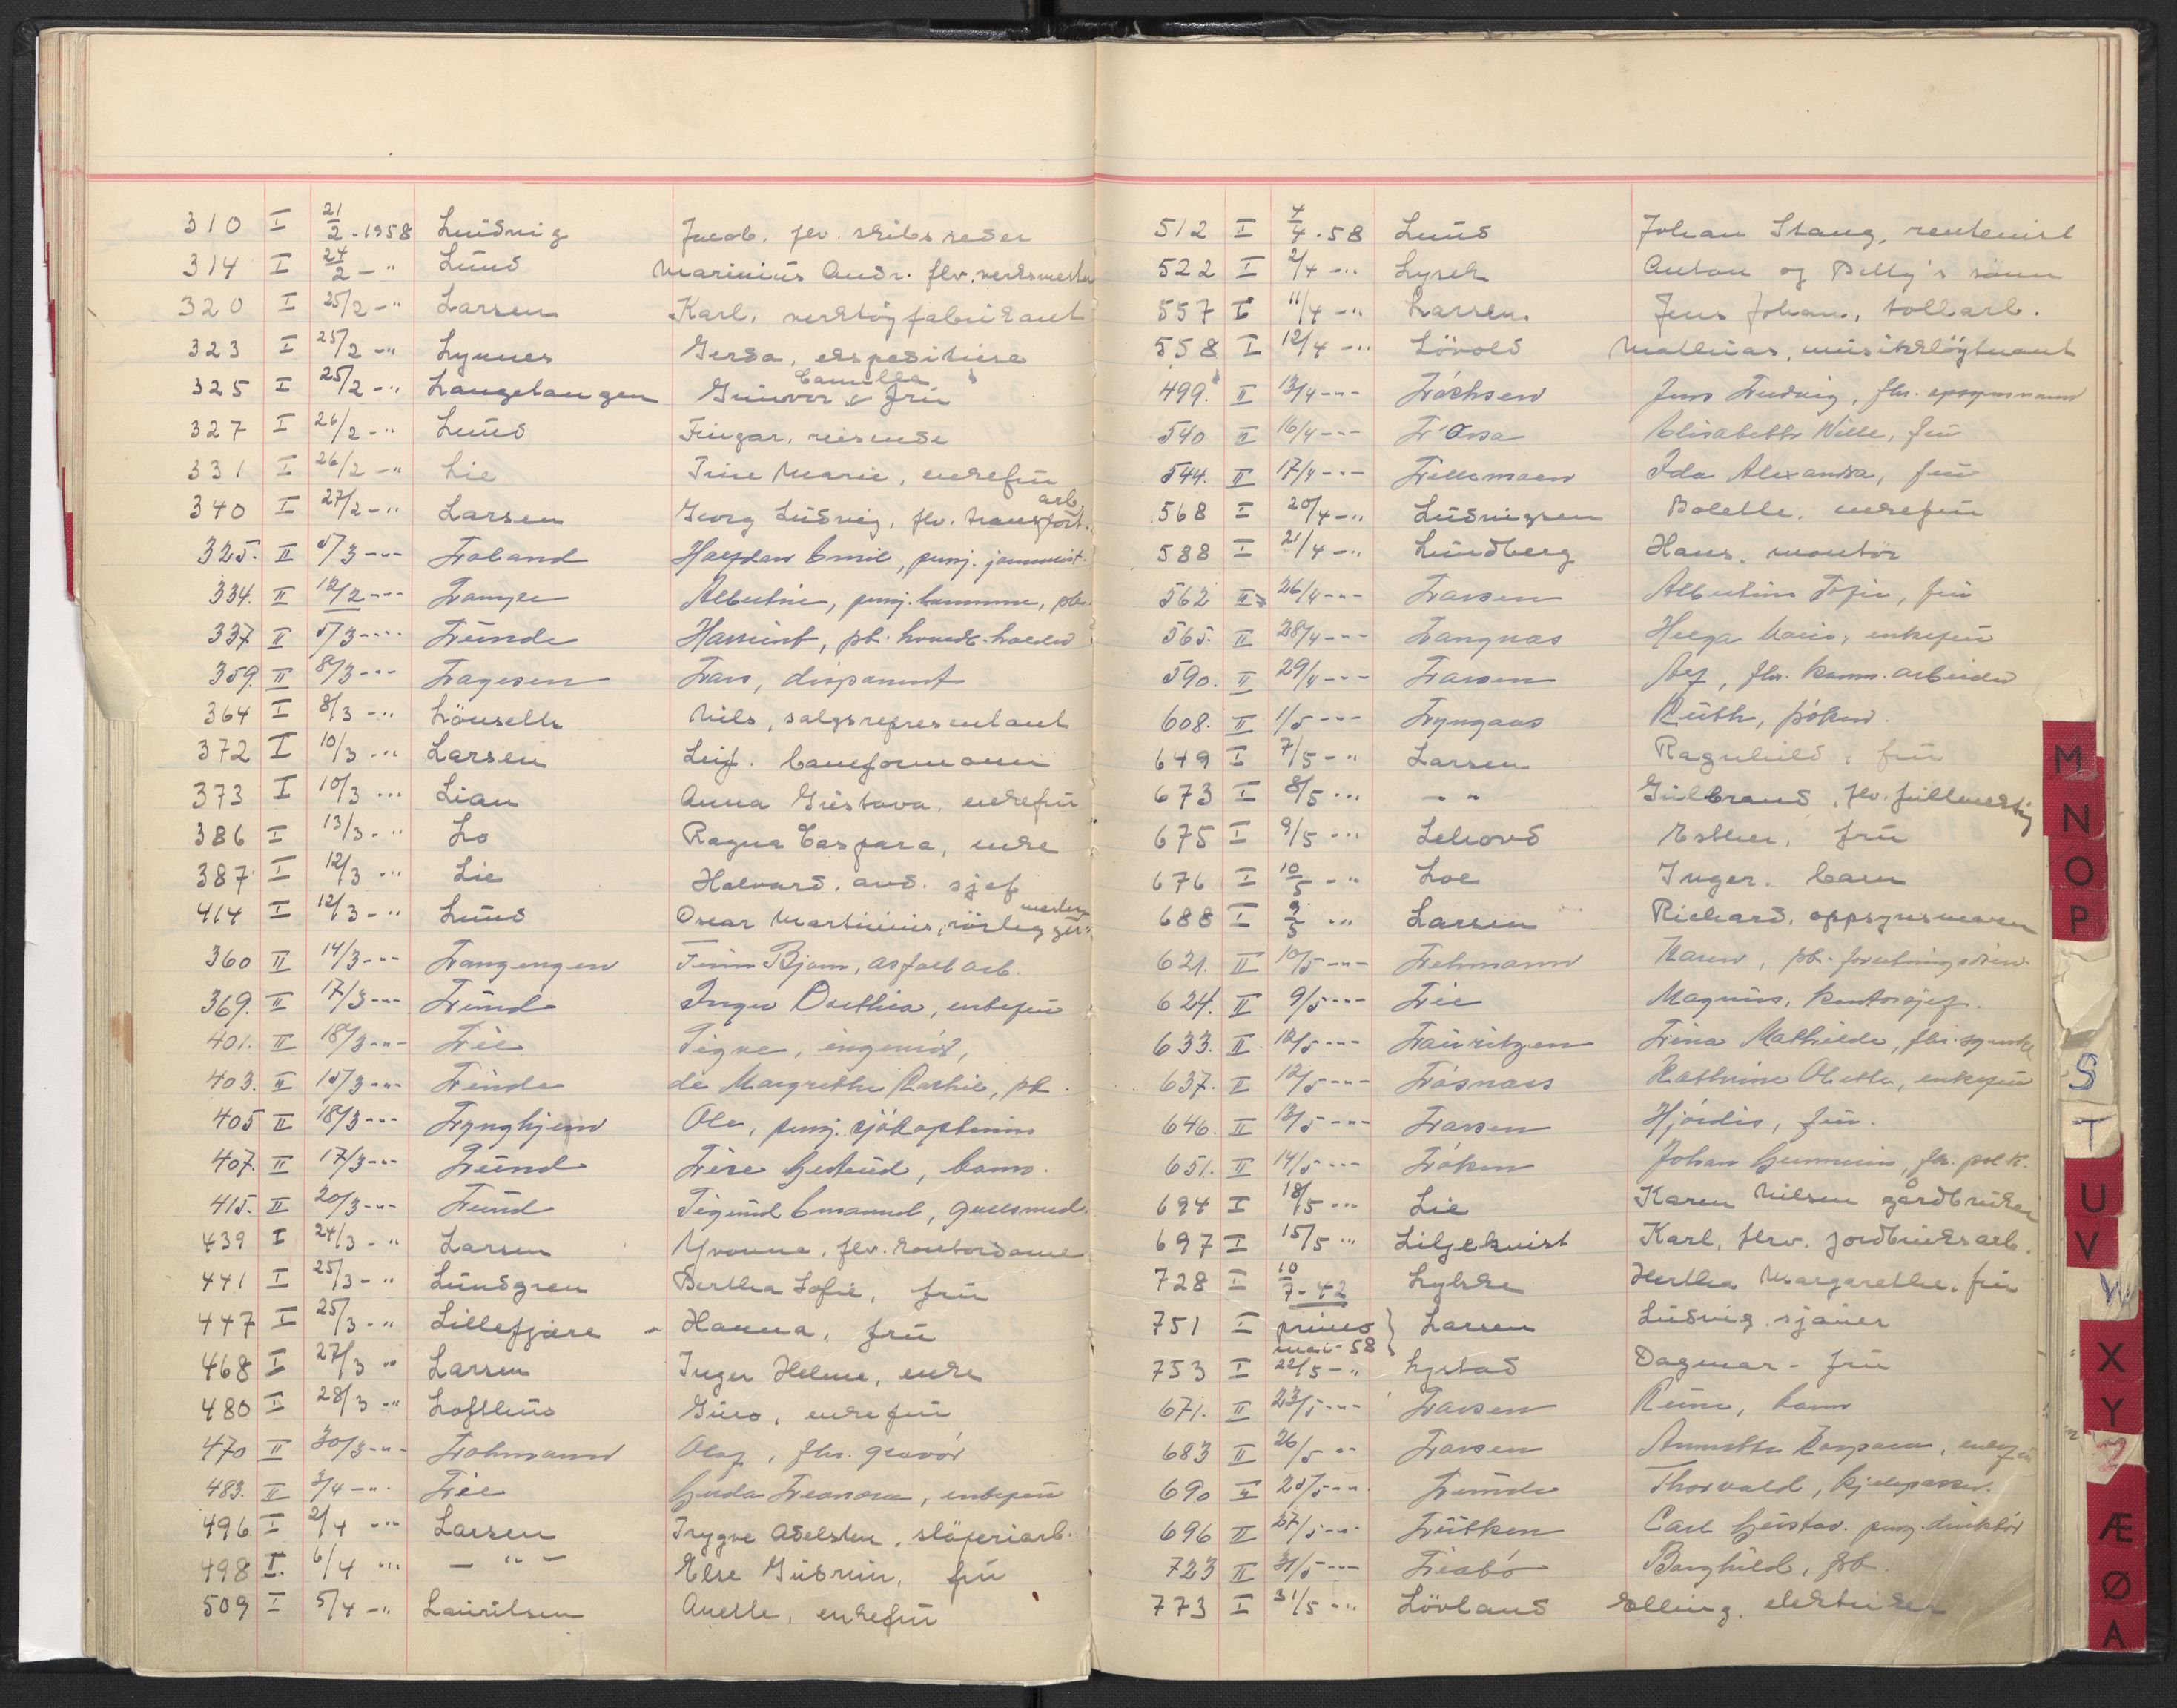 310 I 21/2-1958 Ludvig Jacob, flv. skibsreder
314 I 24/2 - " Lund Marinius Andr. flv. verksmester
320 I 25/2 - " Larsen Karl, verktøyfabrikant
323 I 25/2 - " Lynnes Gerda, ekspeditrise
325 I 25/2 - " Langetangen Gunvor Camilla frú
327 I 26/2 - " Lund Fingar, reisende
331 I 26/2 - " Lie Trine Marie, enkefrú
340 I 27/2 - " Larsen Georg Ludvig, flv. transport. arb.
325. II 5/3 - " - Loland Halfdan Emil, pensj. journalist.
334. II 12/2 - " - Lange Albertine, pensj.
337 II 5/3 - " - Lunde Harriet, pb.
359. II 8/3 - " - Lagesen Lars, disponent
364 I 8/3 - " Lönseth Nils, salgsrepresentant
372 I 10/3 - " Larsen Leif. baneformann
373 I 10/3 ... Lian Anna Gustava, enkefrú
386 I 13/3 - " Lo Ragna Caspara, enke
387 I 12/3 ... Lie Halvard, avd. sjef
414 I 12/3 - " Lund Oscar Martinius, rörlegger- mester
360 II 14/3 - " - Langengen Finn Bjørn, asfaltarb.
369. II 17/3 - " - Lund Inger Dorthea, enkefrú
401. II 18/3 - " - Lie Signe, ingeniör,
403. II 15/3 - " - Linde de Margrethe Cathie, pb.
405 II 18/3 - " - Lynghjem Ole, pensj. sjökaptein
407. II 17/3 - " - Lund Lise Gertrud, barn.
415. II 20/3 - " - Lund Sigurd Emanuel, gullsmed.
439 I 24/3 - " Larsen Yvonne, flv. kontordame
441 I 25/3 - " Lundgren Bertha Sofie, frú
447 I 25/3 - " Lillefjære Hanna, frú
468 I 27/3 " Larsen Inger Helene, enke
480 I 28/3 - " Lofthus Guro, enkefrú
470 II 30/3 - " - Lohmann Olaf, fhv. gravör
483. II 3/4 - " - Lie Gerda Leonora, enkefrú
496 I 2/4 - " Larsen Trygve Adelsten, sløyferiarb.
498 I. 6/4 ... - " - Else Gudrun, frú
509 I 5/4 - " Lauritsen Anette, enkefrú
512 I 4/4 - 58 Lund Johan Stang, rentenist
522 I 2/4 - " Lysek Anton og Betty's sönn
557 I 11/4 - " Larsen Jens Johan, tollarb.
558 I 12/4 - " Lövold Mathias, musikkløytnant
499. II 13/4 - " - Löchsen Jens Ludvig, fhv. opsynsmann
540 II 16/4 - " - L'Orsa Elisabeth Wille, frú
544. II 17/4 - " - Lillemoen Ida Alexandra, frú
568 I 20/4 - " Ludvigsen Bolette, enkefrú
588 I 21/4 - " Lundberg Hans, montör
562 II 26/4 - " - Larsen Albertine Sofie, frú
565. II 28/4 - " - Langnas Helga Marie, enkefrú
590. II 29/4 - " - Larsen Alf, fhv. komm. arbeider
608. II 1/5 - " - Lyngaas Ruth, fröken
649 I 7/5 - " Larsen Ragnhild, frú
673 I 8/5 ... - " Gulbrand, flv. fullmektig
675 I 9/5 ... Lehovd Esther, frú
676 I 10/5 - " Loe Inger. barn
688 I 9/5 ... Larsen Richard, oppsynsmann
621. II 10/5 - " - Lehmann Karen, pb. forretningsdriv.
624. II 9/5 - " - Lie Magnus, kontorsjef.
633. II 12/5 - " - Lauritzen Lina Mathilde, fhv.
637. II 12/5 - " - Låsnars Kathrine Oletta, enkefrú
646. II 13/5 - " - Larsen Hjördis, frú.
651. II 14/5 - " - Löken Johan
694 I 18/5 ... Lie Karen Nilsen gårdbruker
697 I 15/5 ... Liljekvist Karl, fhrv. jordbruksarb.
728 I 10/7 - 42 Lykke Hertha Margarethe, frú
751 I primo mai - 58 } Larsen Ludvig, sjauer
753 I 22/5 - " Lystad Dagmar - frú
671. II 23/5 - " - Larsen Rune, barn
683 II 26/5 - " Larsen Annette Kaspara, enkefrú
690 II 25/5 - " - Lunde Thorvald, kjelepasser.
696 II 27/5 - " - Lütken Carl Gustav. pensj. direktör
723 II 31/5 - " - Liabö Borghild, pb.
773 I 31/5 - " Lövland Elling, elektriker
M
N
O
P
S
T
U
V
W
X
Y
Z
Æ
Ø
A